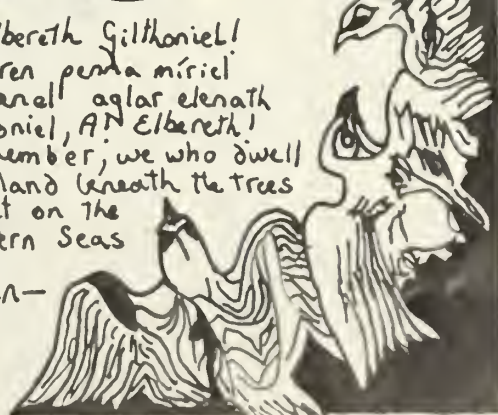 lbereth Gilthoniel!
ren penna míriel
anel aglar elenath
oniel, A! Elbereth!
ember, we who dwell
land beneath the trees
t on the
ern Seas
n—